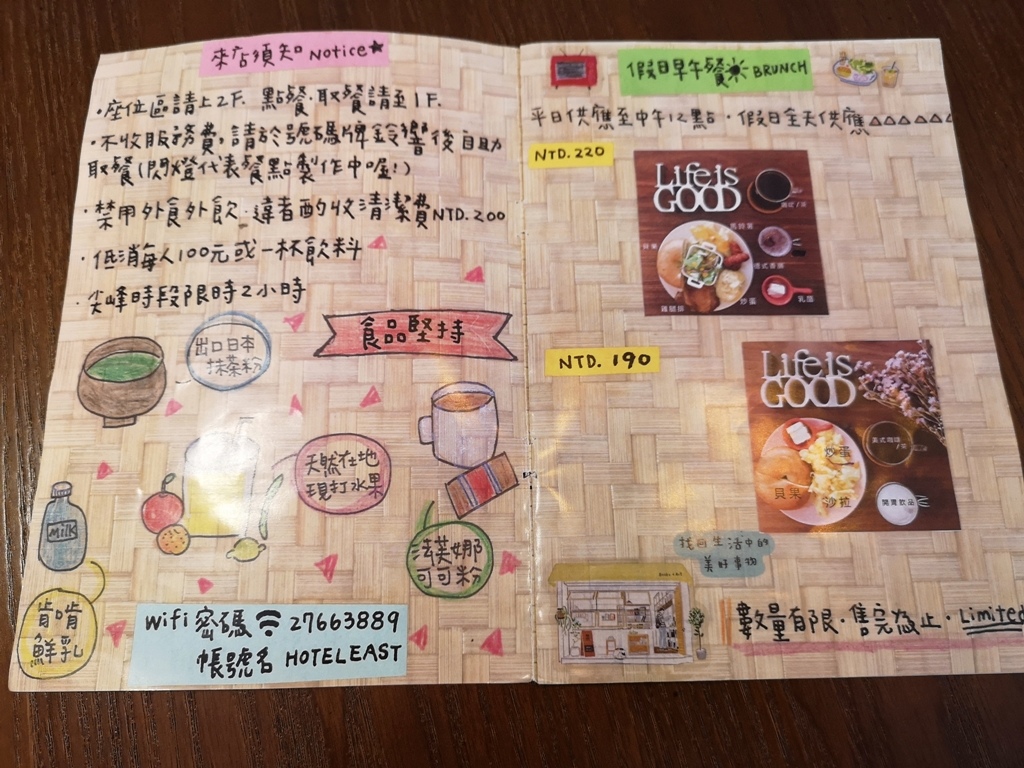 來店須知 Notice★
·座位區請上2F. 點餐·取餐請至1F.
·不收服務費,請於號碼牌鈴響後自助
取餐(閃燈代表餐點製作中喔!)
·禁用外食外飲.違者酌收清潔費NTD.200
·低消每人100元或一杯飲料
·尖峰時段限時2小時
食品堅持
出口日本
抹茶粉
天然在地
現打水果
MiLK
法芙娜
可可粉
肯啃
鮮乳
wifi 密碼 27663889
帳號名 HOTELEAST
假日早午餐 BRUNCH
平日供應至中午12點·假日全天供應
NTD.220
Life is
GOOD
馬鈴薯
貝果
德式香腸
炒蛋
乳酪
雞腿排
NTD. 190
Life is
GOOD
炒蛋
美式咖啡
/茶
貝果
沙拉
開胃飲品
找回生活中的
美好事物
數量有限·售完為止·Limited